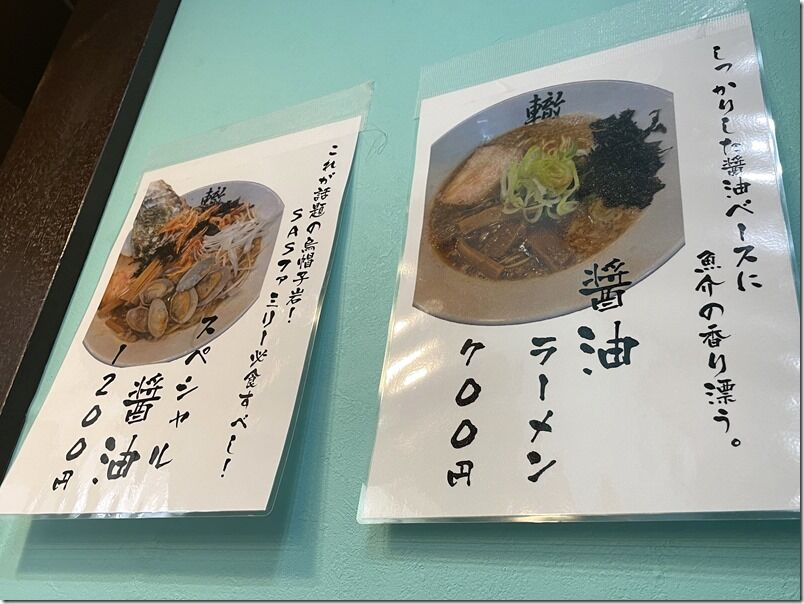 しっかりした醤油ベースに
魚介の香り漂う。
轍
醤油
ラーメン
700円
これが話題の烏帽子岩！
SASファミリー必食すべし！
轍
スペシャル
醤油
1200円